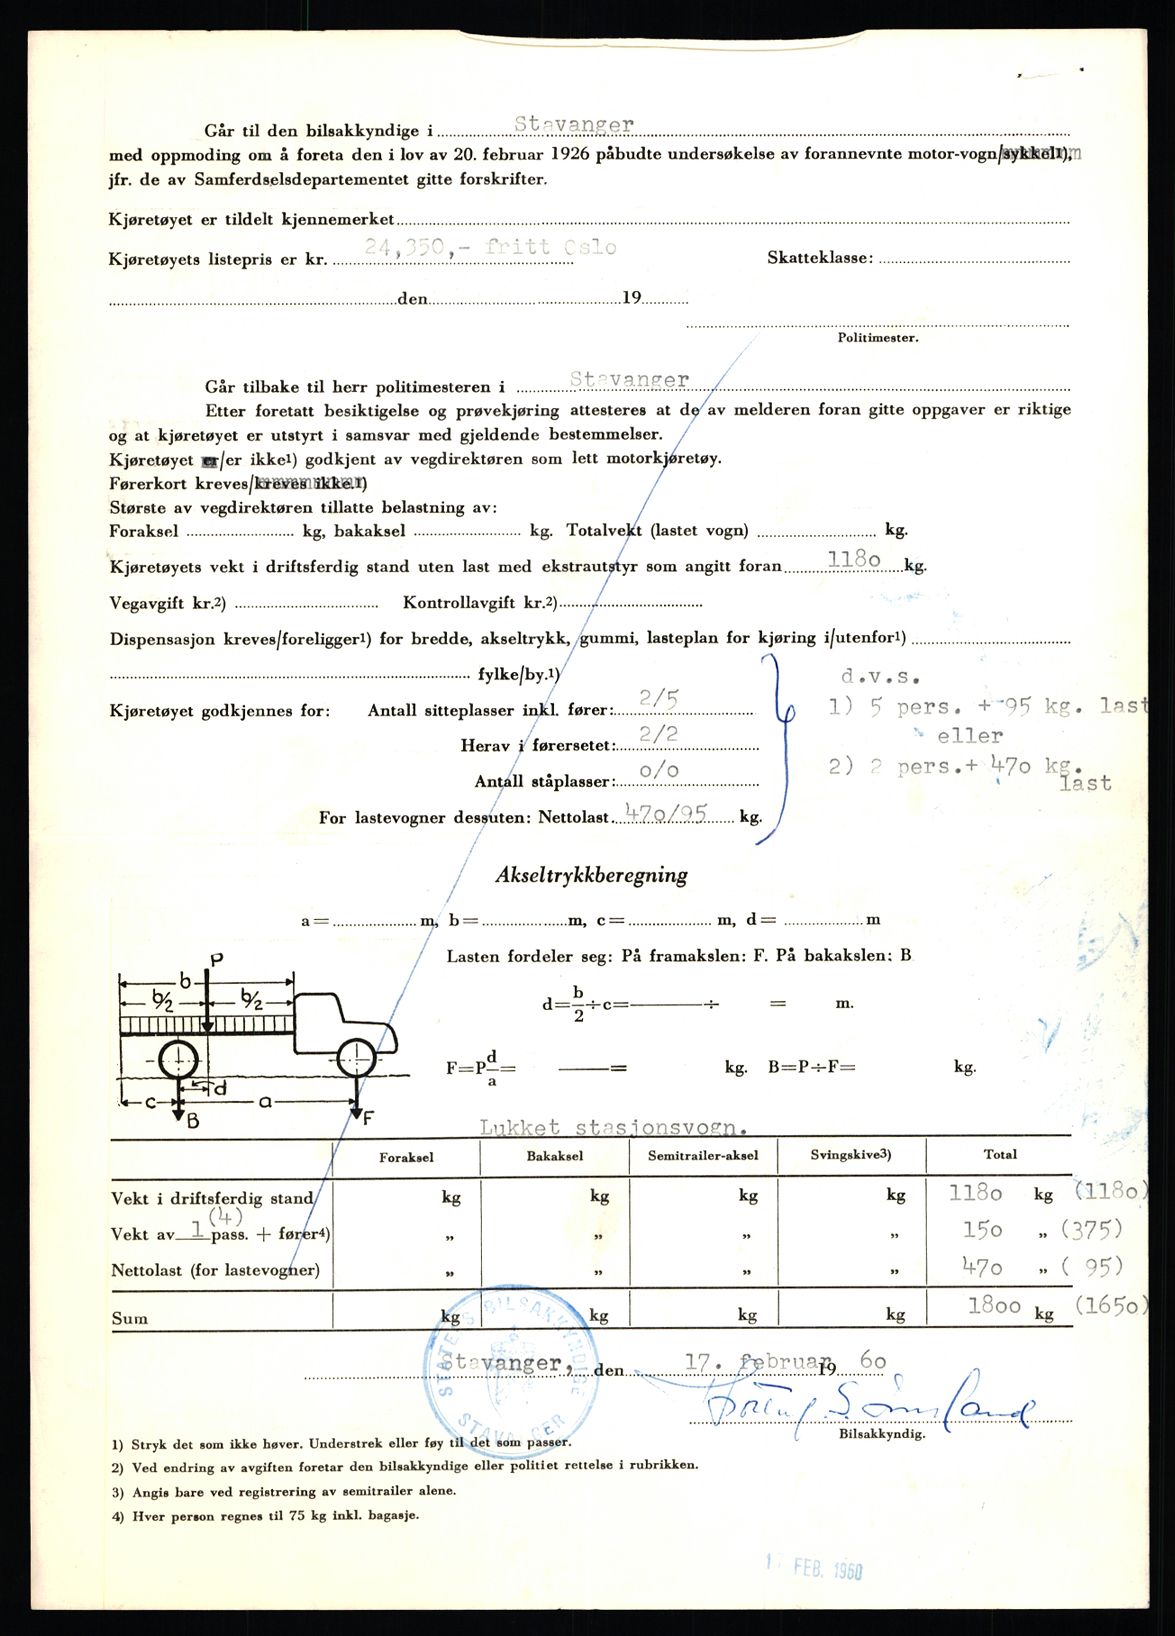 Går til den bilsakkyndige i Stavanger
med oppmoding om å foreta den i lov av 20. februar 1926 påbudte undersøkelse av forannevnte motor-vogn/sykkel1),
jfr. de av Samferdselsdepartementet gitte forskrifter.
Kjøretøyet er tildelt kjennemerket
Kjøretøyets listepris er kr. 24,350,- fritt Oslo Skatteklasse:
den 19
Politimester.
Går tilbake til herr politimesteren i Stavanger
Etter foretatt besiktigelse og prøvekjøring attesteres at de av melderen foran gitte oppgaver er riktige
og at kjøretøyet er utstyrt i samsvar med gjeldende bestemmelser.
Kjøretøyet er/er ikke1) godkjent av vegdirektøren som lett motorkjøretøy.
Førerkort kreves/kreves ikke.1)
Største av vegdirektøren tillatte belastning av:
Foraksel kg, bakaksel kg. Totalvekt (lastet vogn) kg.
Kjøretøyets vekt i driftsferdig stand uten last med ekstrautstyr som angitt foran 1180 kg.
Vegavgift kr.2) Kontrollavgift kr.2)
Dispensasjon kreves/foreligger1) for bredde, akseltrykk, gummi, lasteplan for kjøring i/utenfor1)
fylke/by.1)
d.v.s.
Kjøretøyet godkjennes for: Antall sitteplasser inkl. fører: 2/5 1) 5 pers. + 95 kg. last
Herav i førersetet: 2/2 eller
Antall ståplasser: 0/0 2) 2 pers.+ 470 kg.
last
For lastevogner dessuten: Nettolast. 470/95 kg.
Akseltrykkberegning
a = m, b = m, c = m, d = m
Lasten fordeler seg: På framakslen: F. På bakakslen: B
P
b
b/2 b/2
d = b/2 ÷ c = ÷ = m.
F = P d/a = = kg. B = P ÷ F = kg.
d
c a
B F
Lukket stasjonsvogn.
Foraksel Bakaksel Semitrailer-aksel Svingskive3) Total
Vekt i driftsferdig stand kg kg kg kg 1180 kg (1180)
(4)
Vekt av 1 pass. + fører4) „ „ „ „ 150 „ (375)
Nettolast (for lastevogner) „ „ „ „ 470 „ ( 95)
Sum kg kg kg kg 1800 kg (1650)
STATENS BILSAKKYNDIGE STAVANGER
Stavanger, den 17. februar 19 60
Bilsakkyndig.
1) Stryk det som ikke høver. Understrek eller føy til det som passer.
2) Ved endring av avgiften foretar den bilsakkyndige eller politiet rettelse i rubrikken.
3) Angis bare ved registrering av semitrailer alene.
4) Hver person regnes til 75 kg inkl. bagasje.
17 FEB. 1960